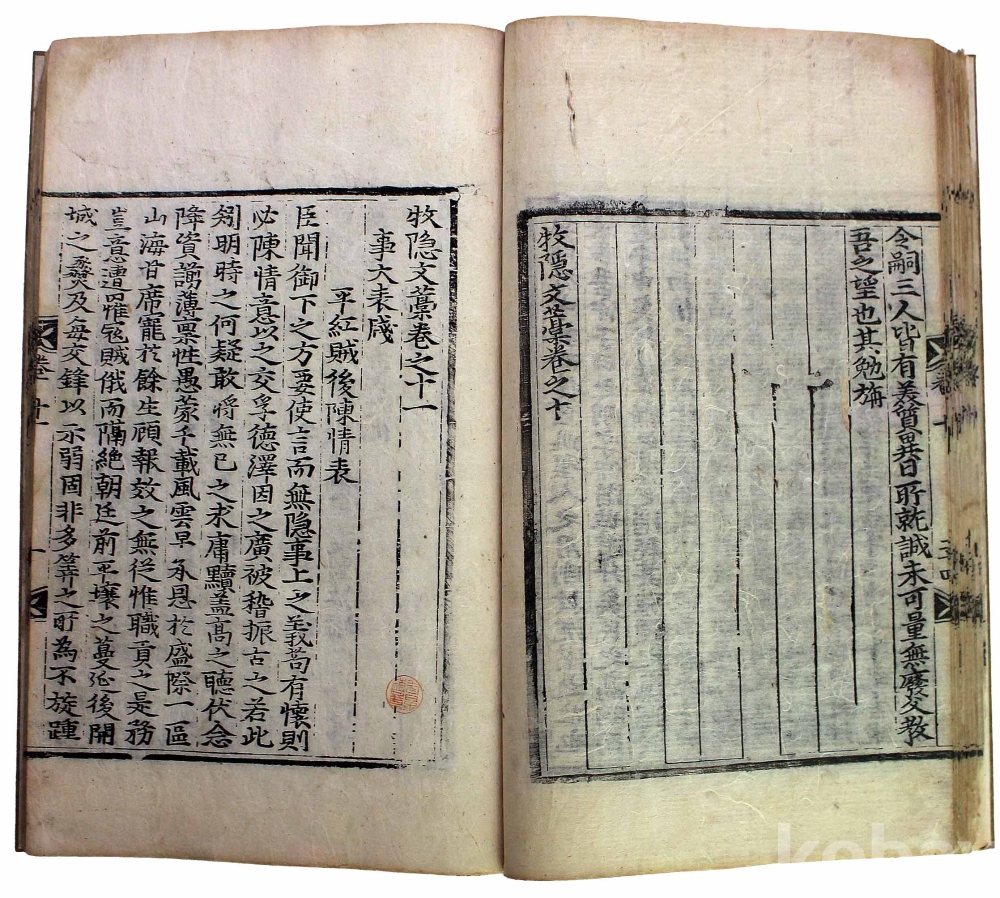 令嗣三人皆有義質異昔所就誠未可量無廢父教
吾之望也其勉旃
牧隱文藁卷之十
牧隱文藁卷之十一
事大表牋
平紅賊後陳情表
臣聞御下之方要使言而無隱事上之義苟有懷則
必陳情意以之交孚德澤因之廣被稽振古之若此
矧明時之何疑敢將無已之求庸黷盖高之聽伏念
降資謭薄禀性愚蒙千載風雲早承恩於盛際一區
山海甘席寵於餘生顧報效之無從惟職貢之是務
豈意遭罹寇賊俄而隔絶朝廷前平壤之蔓延後開
城之及每交鋒以示弱固非多筭之所為不旋踵